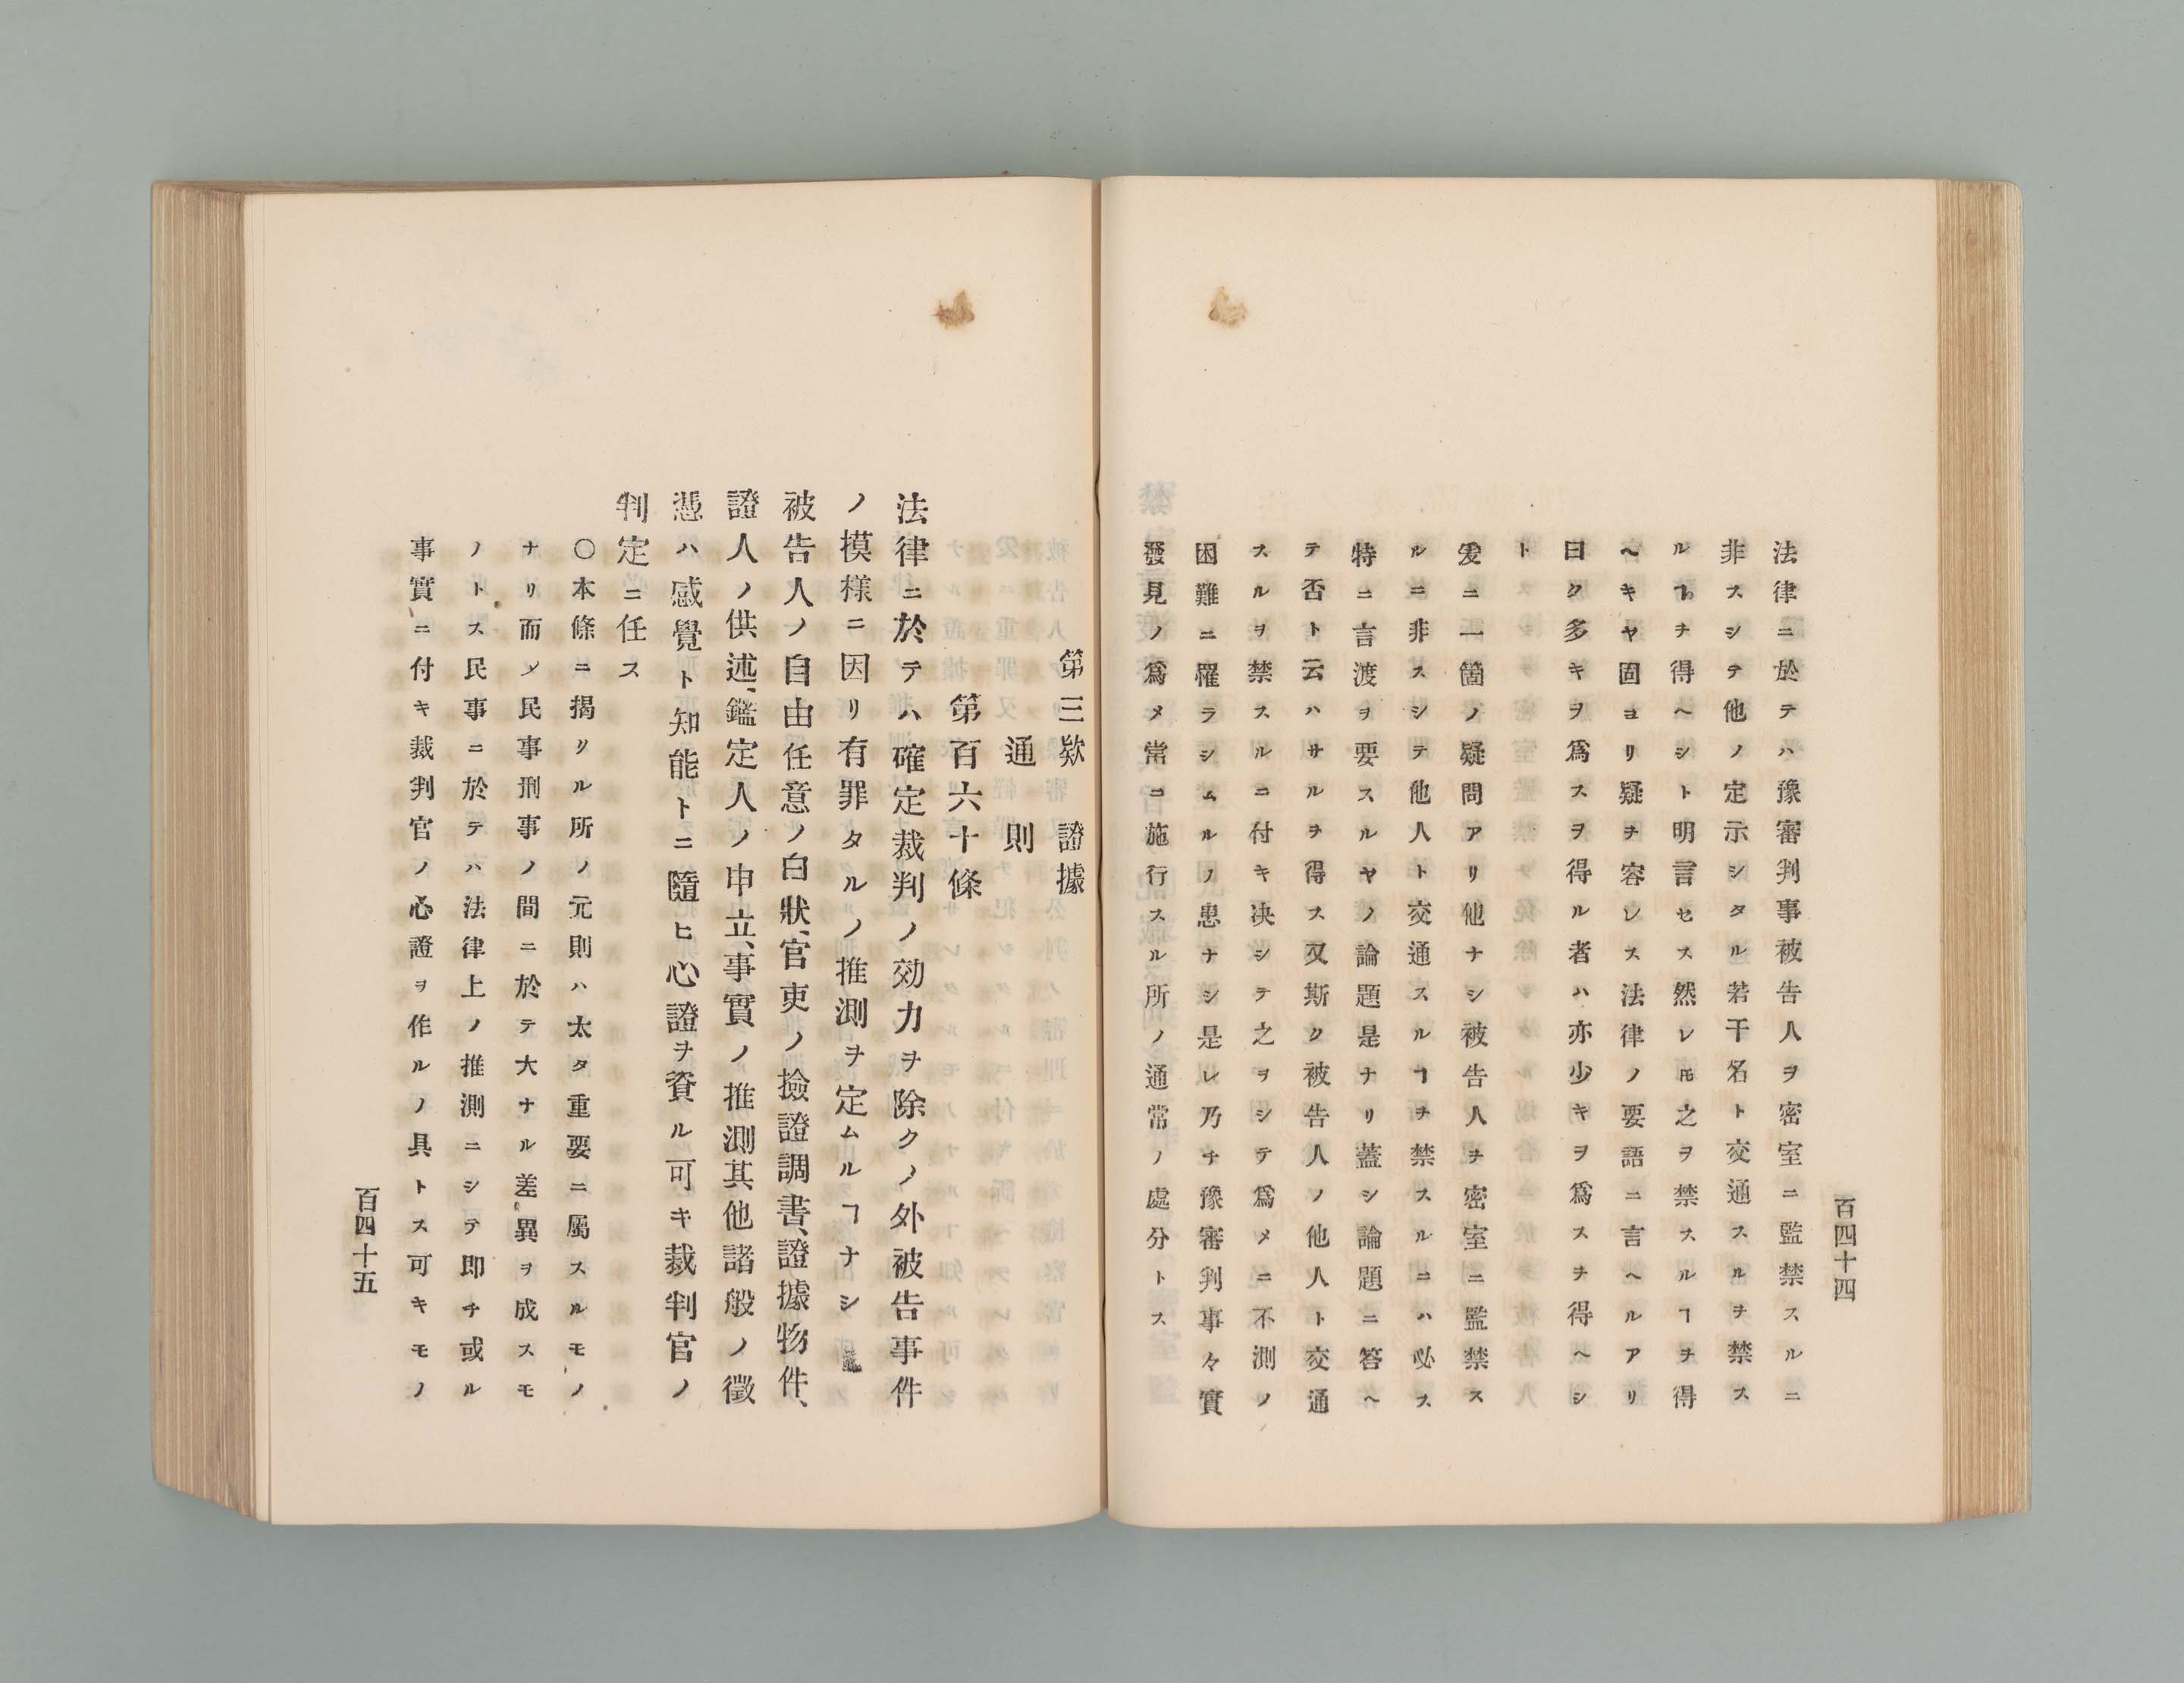 百四十四
法律ニ於テハ豫審判事被告人ヲ密室ニ監禁スルニ
非スシテ他ノ定示シタル若干名ト交通スルヲ禁ス
ルヿヲ得ヘシト明言セス然レ𪜈之ヲ禁スルヿヲ得
ヘキヤ固ヨリ疑ヲ容レス法律ノ要語ニ言ヘルアリ
曰ク多キヲ爲スヲ得ル者ハ亦少キヲ爲スヲ得ヘシ
ト
爰ニ一箇ノ疑問アリ他ナシ被告人ヲ密室ニ監禁ス
ルニ非スシテ他人ト交通スルヿヲ禁スルニハ必ス
特ニ言渡ヲ要スルヤノ論題是ナリ蓋シ論題ニ答ヘ
テ否ト云ハサルヲ得ス又斯ク被告人ノ他人ト交通
スルヲ禁スルニ付キ决シテ之ヲシテ爲メニ不測ノ
困難ニ罹ラシムルノ患ナシ是レ乃チ豫審判事々實
發見ノ爲メ常ニ施行スル所ノ通常ノ處分トス
第三欵　證據
通則
第百六十條
法律ニ於テハ確定裁判ノ効力ヲ除クノ外被告事件
ノ摸様ニ因リ有罪タルノ推測ヲ定ムルヿナシ
被告人ノ自由任意ノ白狀、官吏ノ撿證調書、證據物件、
證人ノ供述、鑑定人ノ申立、事實ノ推測其他諸般ノ徵
憑ハ感覺ト知能トニ隨ヒ心證ヲ資ル可キ裁判官ノ
判定ニ任ス
〇本條ニ揭クル所ノ元則ハ太タ重要ニ屬スルモノ
ナリ而ソ民事刑事ノ間ニ於テ大ナル差異ヲ成スモ
ノトス民事ニ於テハ法律上ノ推測ニシテ即チ或ル
事實ニ付キ裁判官ノ心證ヲ作ルノ具トス可キモノ
百四十五